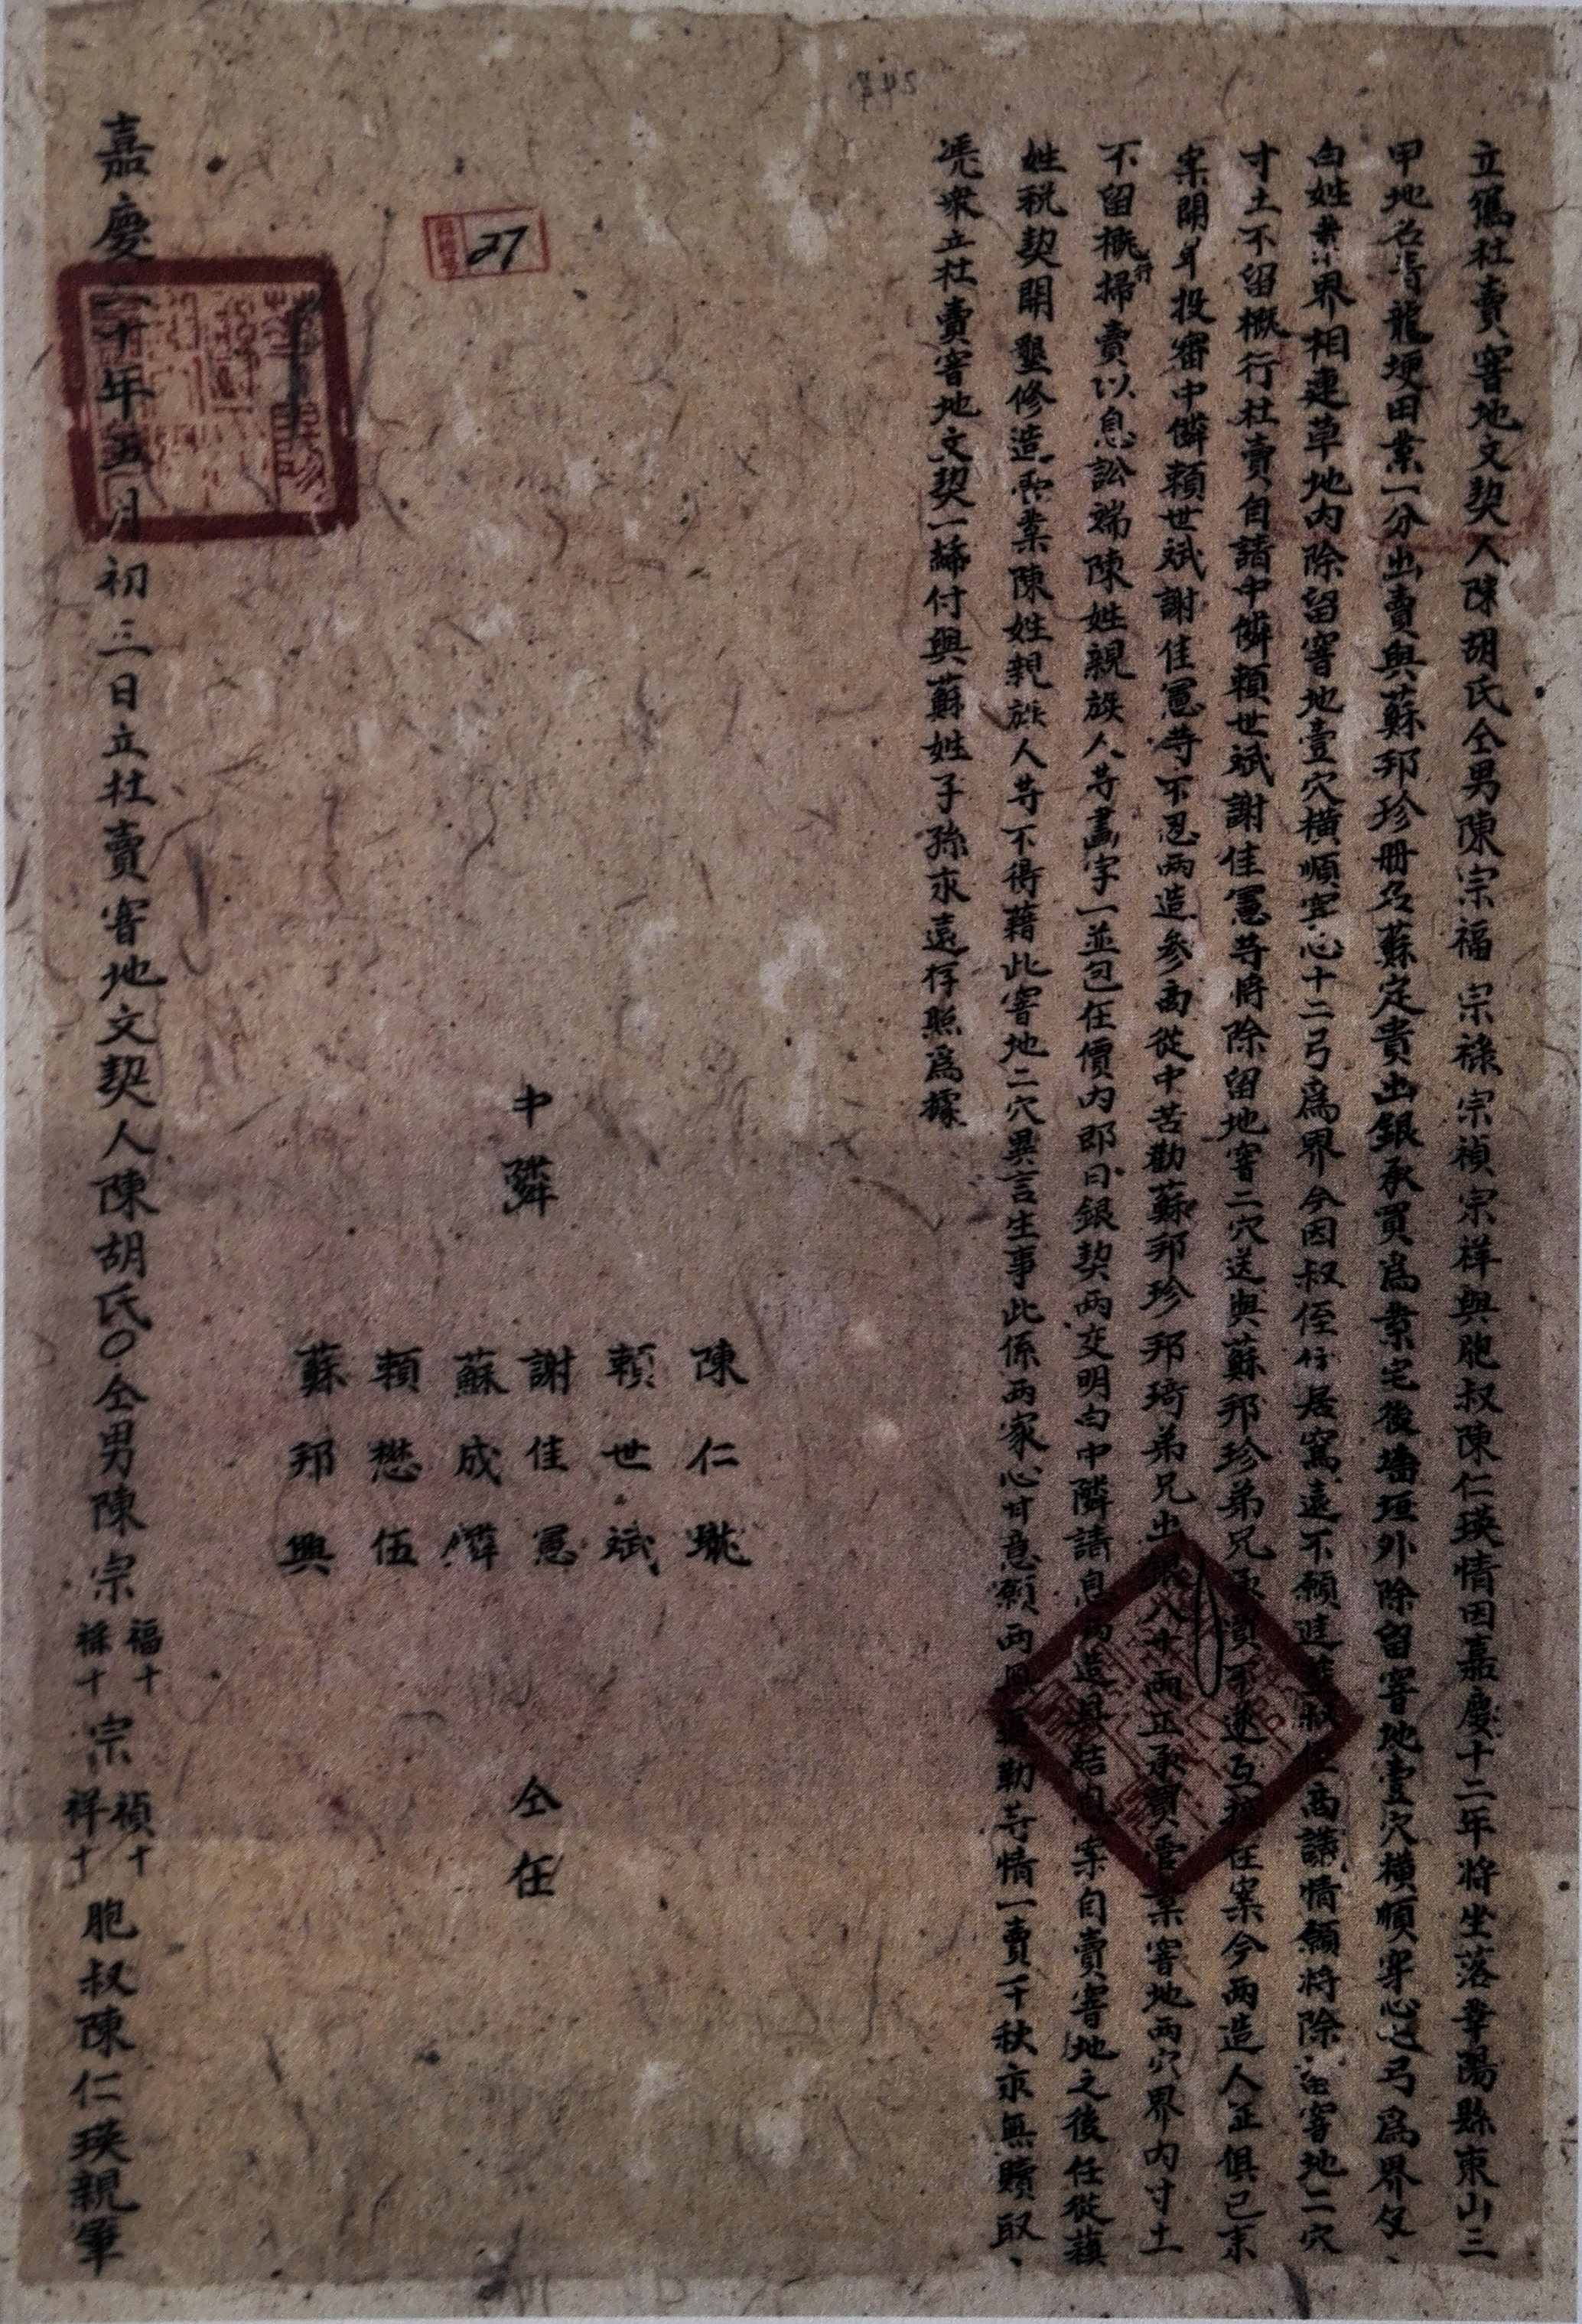 立寫杜賣窨地文契人陳胡氏仝男陳宗福宗祿宗禎宗祥與胞叔陳仁瑛情因嘉慶十二年將坐落華陽縣東山三
甲地名青龍埂田業一分出賣與蘇邦珍冊名蘇定貴出銀承買爲業宅後墻垣外除留窨地壹穴橫順穿心七弓爲界又、
向姓業界相連草地內除留窨地壹穴橫順穿心十二弓爲界今因叔侄仔居窵遠不願進葬叔侄商議情願將除留窨地二穴
寸土不留概行杜賣自請中鄰賴世斌謝佳憲等將除留地窨二穴送與蘇邦珍弟兄承買不遂互控在案今兩造人証俱已來
案開單投審中鄰賴世斌謝佳憲等不忍兩造參商從中苦勸蘇邦珍邦琦弟兄出銀八十兩正承買雲業窨地兩穴界內寸土
不留概行掃賣以息訟端陳姓親族人等畵字一並包在價內即日銀契兩交明白中隣請息兩造具結自案自賣窨地之後任從蘇
姓税契開墾修造雲業陳姓親族人等不得藉此窨地二穴異言生事此係兩家心甘意願兩無逼勒等情一賣千秋永無贖取、
凴衆立杜賣窨地文契一䋲付與蘇姓子孫永遠存照爲據
中隣
陳仁瓏
賴世斌
謝佳憲
蘇成
賴懋伍
蘇邦興
仝在
27
嘉慶二十年五月初三日立杜賣窨地文契人陳胡氏〇仝男陳宗福十祿十宗禎十祥十胞叔陳仁瑛親筆